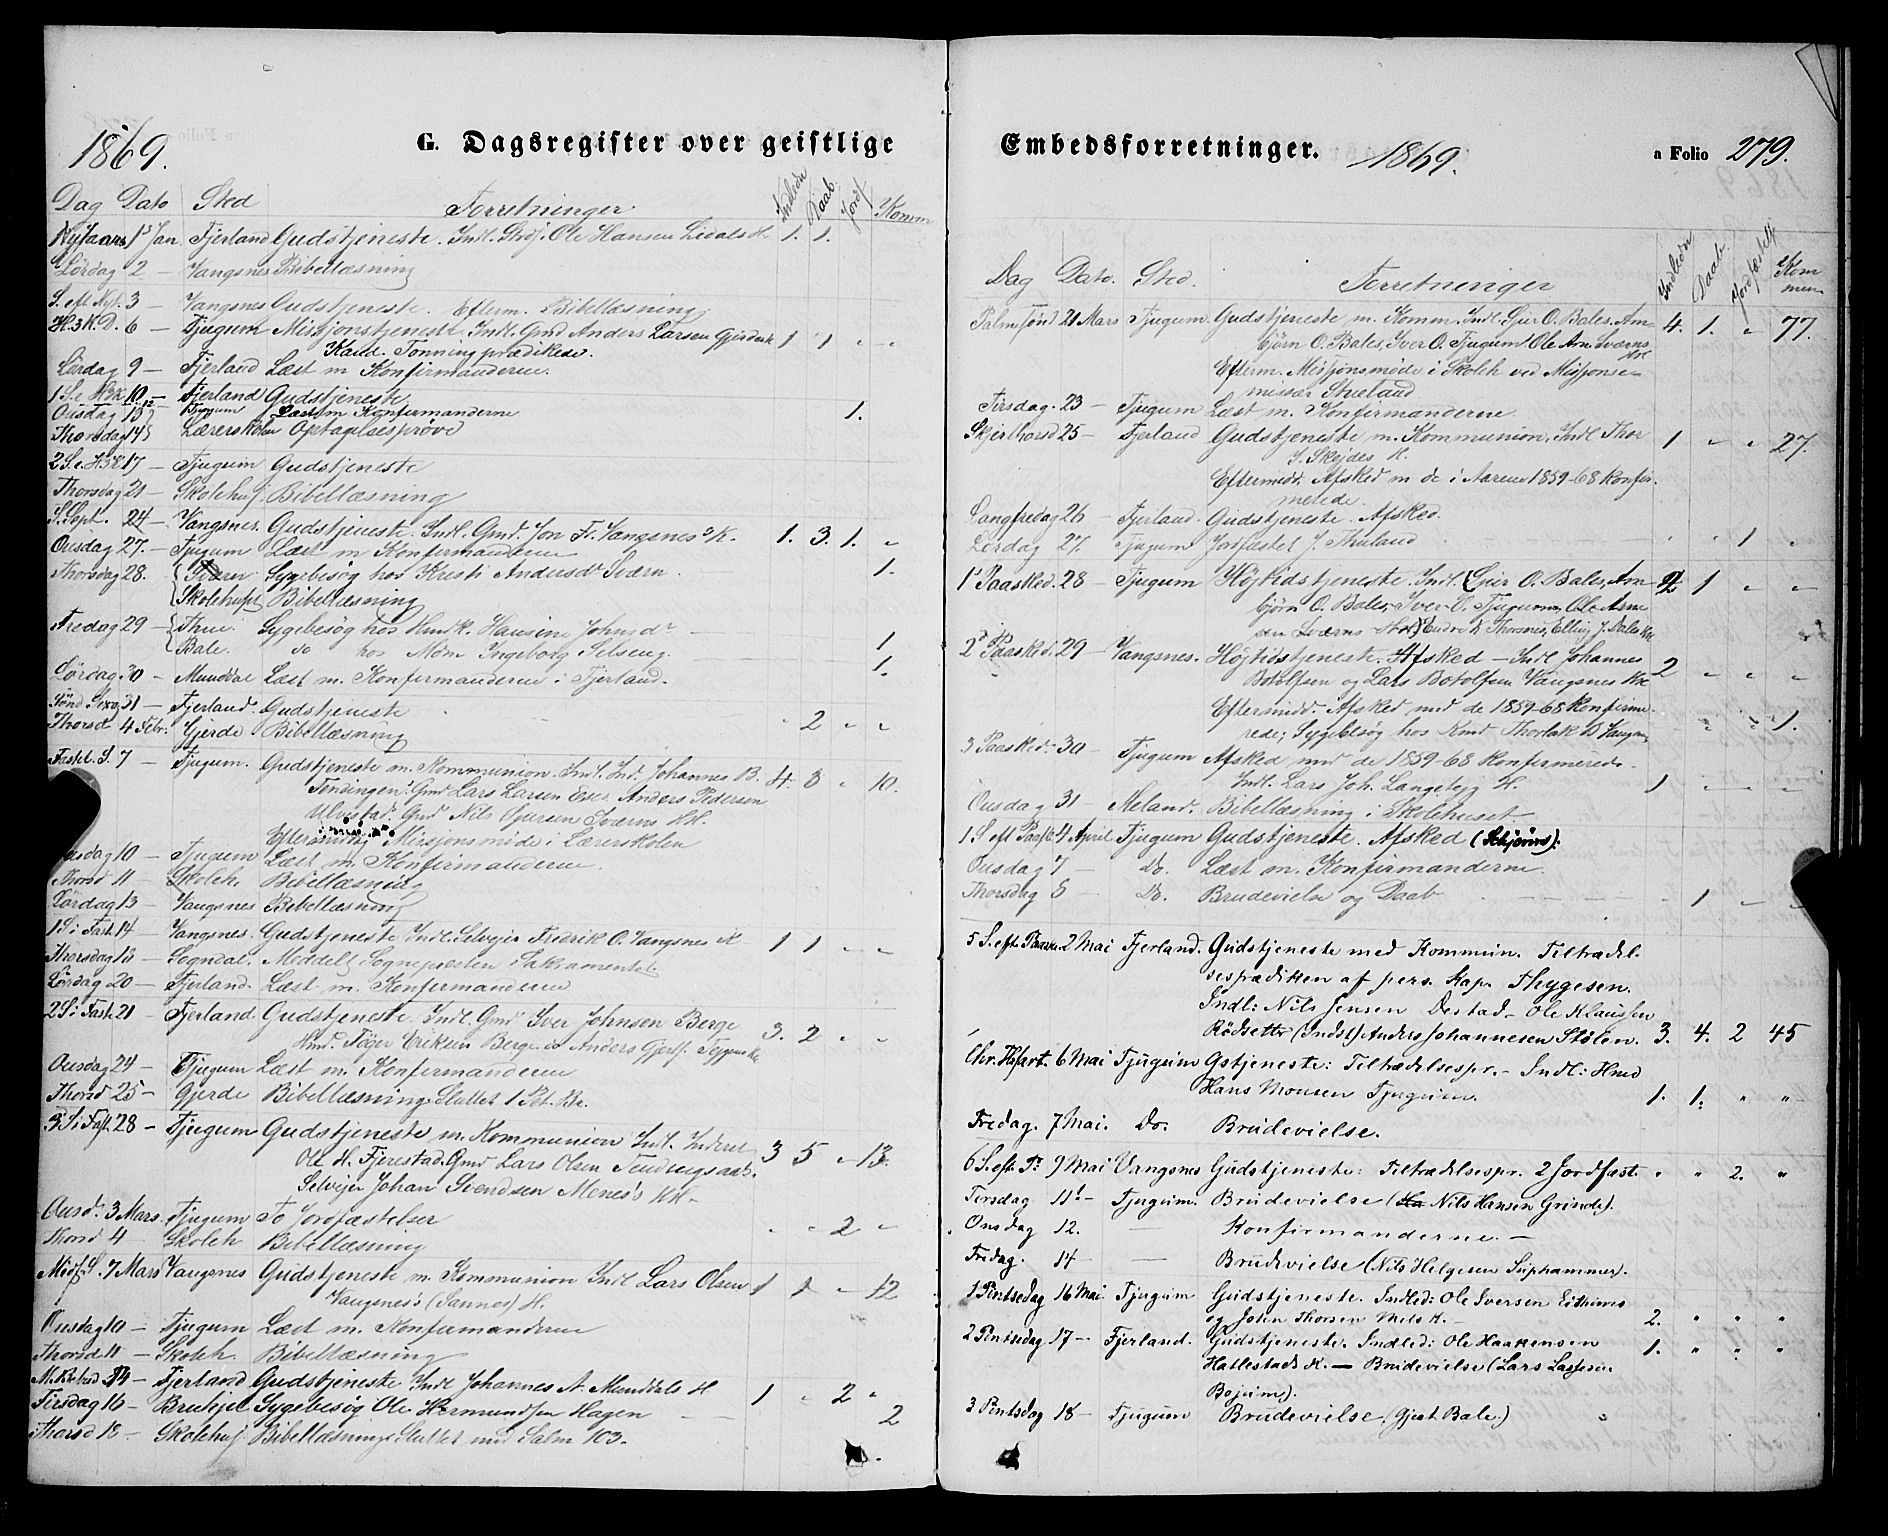 1869.
G. Dagsregister over geistlige
Dag Dato Sted Forretninger Indledn Daab. Jordf Komm
Nytaars 1s Jan. Fjerland Gudstjeneste. Indl. Ole Hansen H. 1. 1.
Lördag 2 — Vangsnes Bibellæsning
S. eft Nyt. 3 — Vangsnes Gudstjeneste. Efterm. Bibellæsning.
H.3K.D. 6 — Tjugum Missjonstjeneste. Indl. Gmd Anders Larsen 1 1 " "
Kand. Tonning prædikede.
Lördag 9 — Fjerland Læst m Konfirmanderne.
1 S. e. H3K 10 — Fjerland Gudstjeneste
Onsdag 13 Tjugum Læst m Konfirmanderne 1.
Thorsdag 14 Lærerskolen Optagelsesprøve
2 S. e. H3K 17 — Tjugum Gudstjeneste
Thorsdag 21 — Skolehuset Bibellæsning
S. Sept. 24 — Vangsnes. Gudstjeneste. Indl. Gmd. Jon Fr. Vangsnes's K. 1. 3. 1. "
Onsdag 27. — Tjugum Læst m Konfirmanderne
Thorsdag 28. Sværen Sygebesøg hos Kristi Andersdr Sværn. 1.
Skolehuset Bibellæsning
Fredag 29 — Sygebesøg hos Husk. Hansine Johnsdr
Bale. do hos Mdm Ingeborg Selseng. 1
Lördag. 30 — Munddal Læst m. Konfirmanderne i Fjerland. 1.
Sönd Sexag. 31 — Fjerland. Gudstjeneste
Thorsd 4 Febr. Gjerde Bibellæsning " 2 " "
Fastel. S. 7 — Tjugum. Gudstjeneste m. Kommunion. Indl. Ind. Johannes B. 4. 3 " 10.
Fendingen. Gmd Lars Larsen Anders Pedersen
Ulvestad. Gmd Nils Sværns KK.
Eftermiddag Missjonsmöde i Lærerskolen
Onsdag 10 — Tjugum Læst m. Konfirmanderne.
Thorsd 11 — Skoleh. Bibellæsning
Lördag 13 — Vangsnes Bibellæsning
1 S i Fast. 14 — Vangsnes. Gudstjeneste Indl. Selvejer Fredrik O. Vangsnes K 1 1 " "
Thorsdag 18 — Sogndal. Meddelt Sognepresten Sakramentet.
Lördag 20 — Fjerland. Læst m. Konfirmanderne
2 S i Fast. 21 — Fjerland. Gudstjeneste. Indl. Gmd Iver Johnsen Berge 3. 2 " "
Hmd. Töger Eriksen Berge. do Anders
Onsdag 24 — Tjugum Læst m. Konfirmanderne
Thorsd 25 — Gjerde Bibellæsning. Sluttet 1 Pet. Br.
3 S i Fast. 28 — Tjugum Gudstjeneste m. Kommunion Indl. Inderst 3 5 " 13.
Ole H. Fjerestad. Gmd Lars Olsen
Selvejer Johan Svendsen Menes's KK —
Onsd. 3 Mars. Tjugum To Jordfæstelser " " 2 "
Thorsd 4 Skoleh Bibellæsning
Midf. S. 7 Mars Vangsnes Gudstjeneste m. Kommunion Indl Lars Olsen 1 1 " 12
Vangsnes's (Sannes) H.
Onsdag 10 — Tjugum Læst m. Konfirmanderne
Thorsd 11 — Skoleh. Bibellæsning
14 — Fjerland Gudstjeneste Indl Johannes A. Munddals H 1 " 2 "
Tirsdag 16 — Sygebesög Ole Hermundsen Hagen 2
Thorsd 18 — Skolehus Bibellæsning. Sluttet med Salm 103.
Embedsforretninger. 1869. a Folio 279.
Dag Dato. Sted. Forretninger Indledn Daab. Jordfæstelse Kommun
Palmesönd 21 Mars Tjugum. Gudstjeneste m. Komm. Indl. Geir O. Bales, Arn- 4. 1. " 77.
björn O. Bales, Iver O. Tjugum, Ole Arn. Sværns
KK
Efterm. Missjonsmöde i Skoleh ved Missjonse-
missær Stueland
Tirsdag. 23 — Tjugum Læst m. Konfirmanderne
Skjerthorsd 25 — Fjerland Gudstjeneste m. Kommunion. Indl Thor 1 " " 27.
S. Skejdes H.
Eftermidd. Afsked m de i Aarene 1859-68 Konfir-
merede.
Langfredag 26 — Fjerland. Gudstjeneste. Afsked.
Lördag 27. Tjugum Jordfæstet J. Thuland " " 1 "
1' Paasked. 28 — Tjugum Höjtidstjeneste. Indl. Geir O. Bales, Arn 2 1 " "
björn O. Bales, Iver O. Tjugums, Ole Arne
sen Sværns Endre K Thorsnes, Elling J. Dales KK
2' Paasked. 29 — Vangsnes. Höjtidstjeneste. Afsked — Indl Johannes 2 " " "
Botolfsen og Lars Botolfsen Vangsnes KK
Eftermidd. Afsked med de 1859-68 Konfirme-
rede; Sygebesøg hos Knud Thorlak B Vangsn. " " " 1.
3 Paasked. 30 — Tjugum Afsked med de 1859-68 Konfirmerede.
Indl. Lars Joh. Langetejg H. 1 " " "
Onsdag 31 — Meland. Bibellæsning i Skolehuset.
1 S. eft Paaske 4 April Tjugum Gudstjeneste. Afsked
Onsdag 7 — Do. Læst m. Konfirmanderne.
Thorsdag 8 — Do. Brudevielse og Daab " 1 " "
5 S. eft. Paaske. 2 Mai Fjerland. Gudstjeneste med Kommun. Tiltrædel-
sesprædiken af pers. Kap. Thygesen.
Indl: Nils Jensen Distad — Ole Klausen
Rödseter (Indst) Anders Johannesen Stölen. 3. 4. 2 45
Chr. Hfart. 6 Mai Tjugum Gstjeneste: Tiltrædelsespr. — Indl: Hmd
Hans Monsen Tjugum. 1. 1. " "
Fredag. 7 Mai. Do. Brudevielse.
6 S. eft. P. 9 Mai Vangsnes Gudstjeneste: Tiltrædelsespr. 2 Jordfæst. " " 2. "
Tirsdag 11 — Tjugum. Brudevielse (Ha Nils Hansen Grinde).
Onsdag 12. — Konfirmanderne. —
Fredag. 14 — — Brudevielse (Nils Helgesen Suphammer).
1 Pintsedag 16 Mai Tjugum Gudstjeneste. Indled: Ole Iversen Eithuns
og John Thorsen Mels K. — 2. " " "
2 Pintsedag 17 — Fjerland. Gudstjeneste. Indled: Ole Haakensen 1. " " "
Hatlestads K. — Brudevielse (Lars Lassesen
Bojum).
3 Pintsdag 18 — Tjugum Brudevielse. (Gjert Bale.)